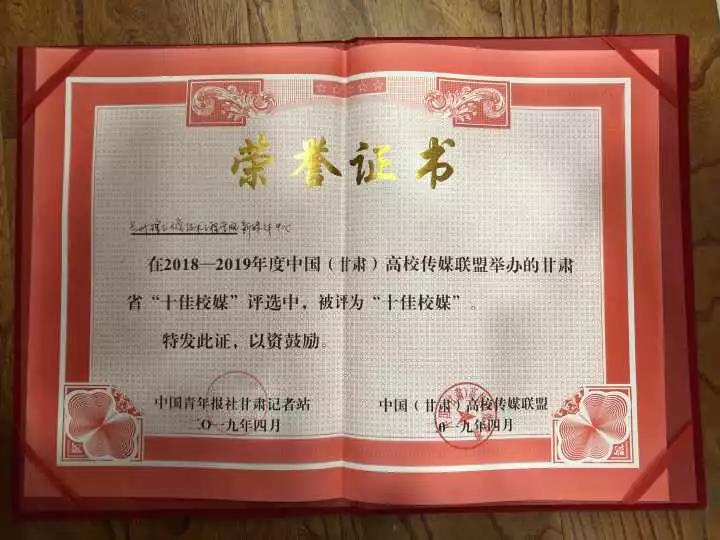 荣誉证书
兰州理工大学技术工程学院新媒体中心
在2018—2019年度中国（甘肃）高校传媒联盟举办的甘肃
省“十佳校媒”评选中，被评为“十佳校媒”。
特发此证，以资鼓励。
中国青年报社甘肃记者站
二〇一九年四月
中国（甘肃）高校传媒联盟
〇一九年四月